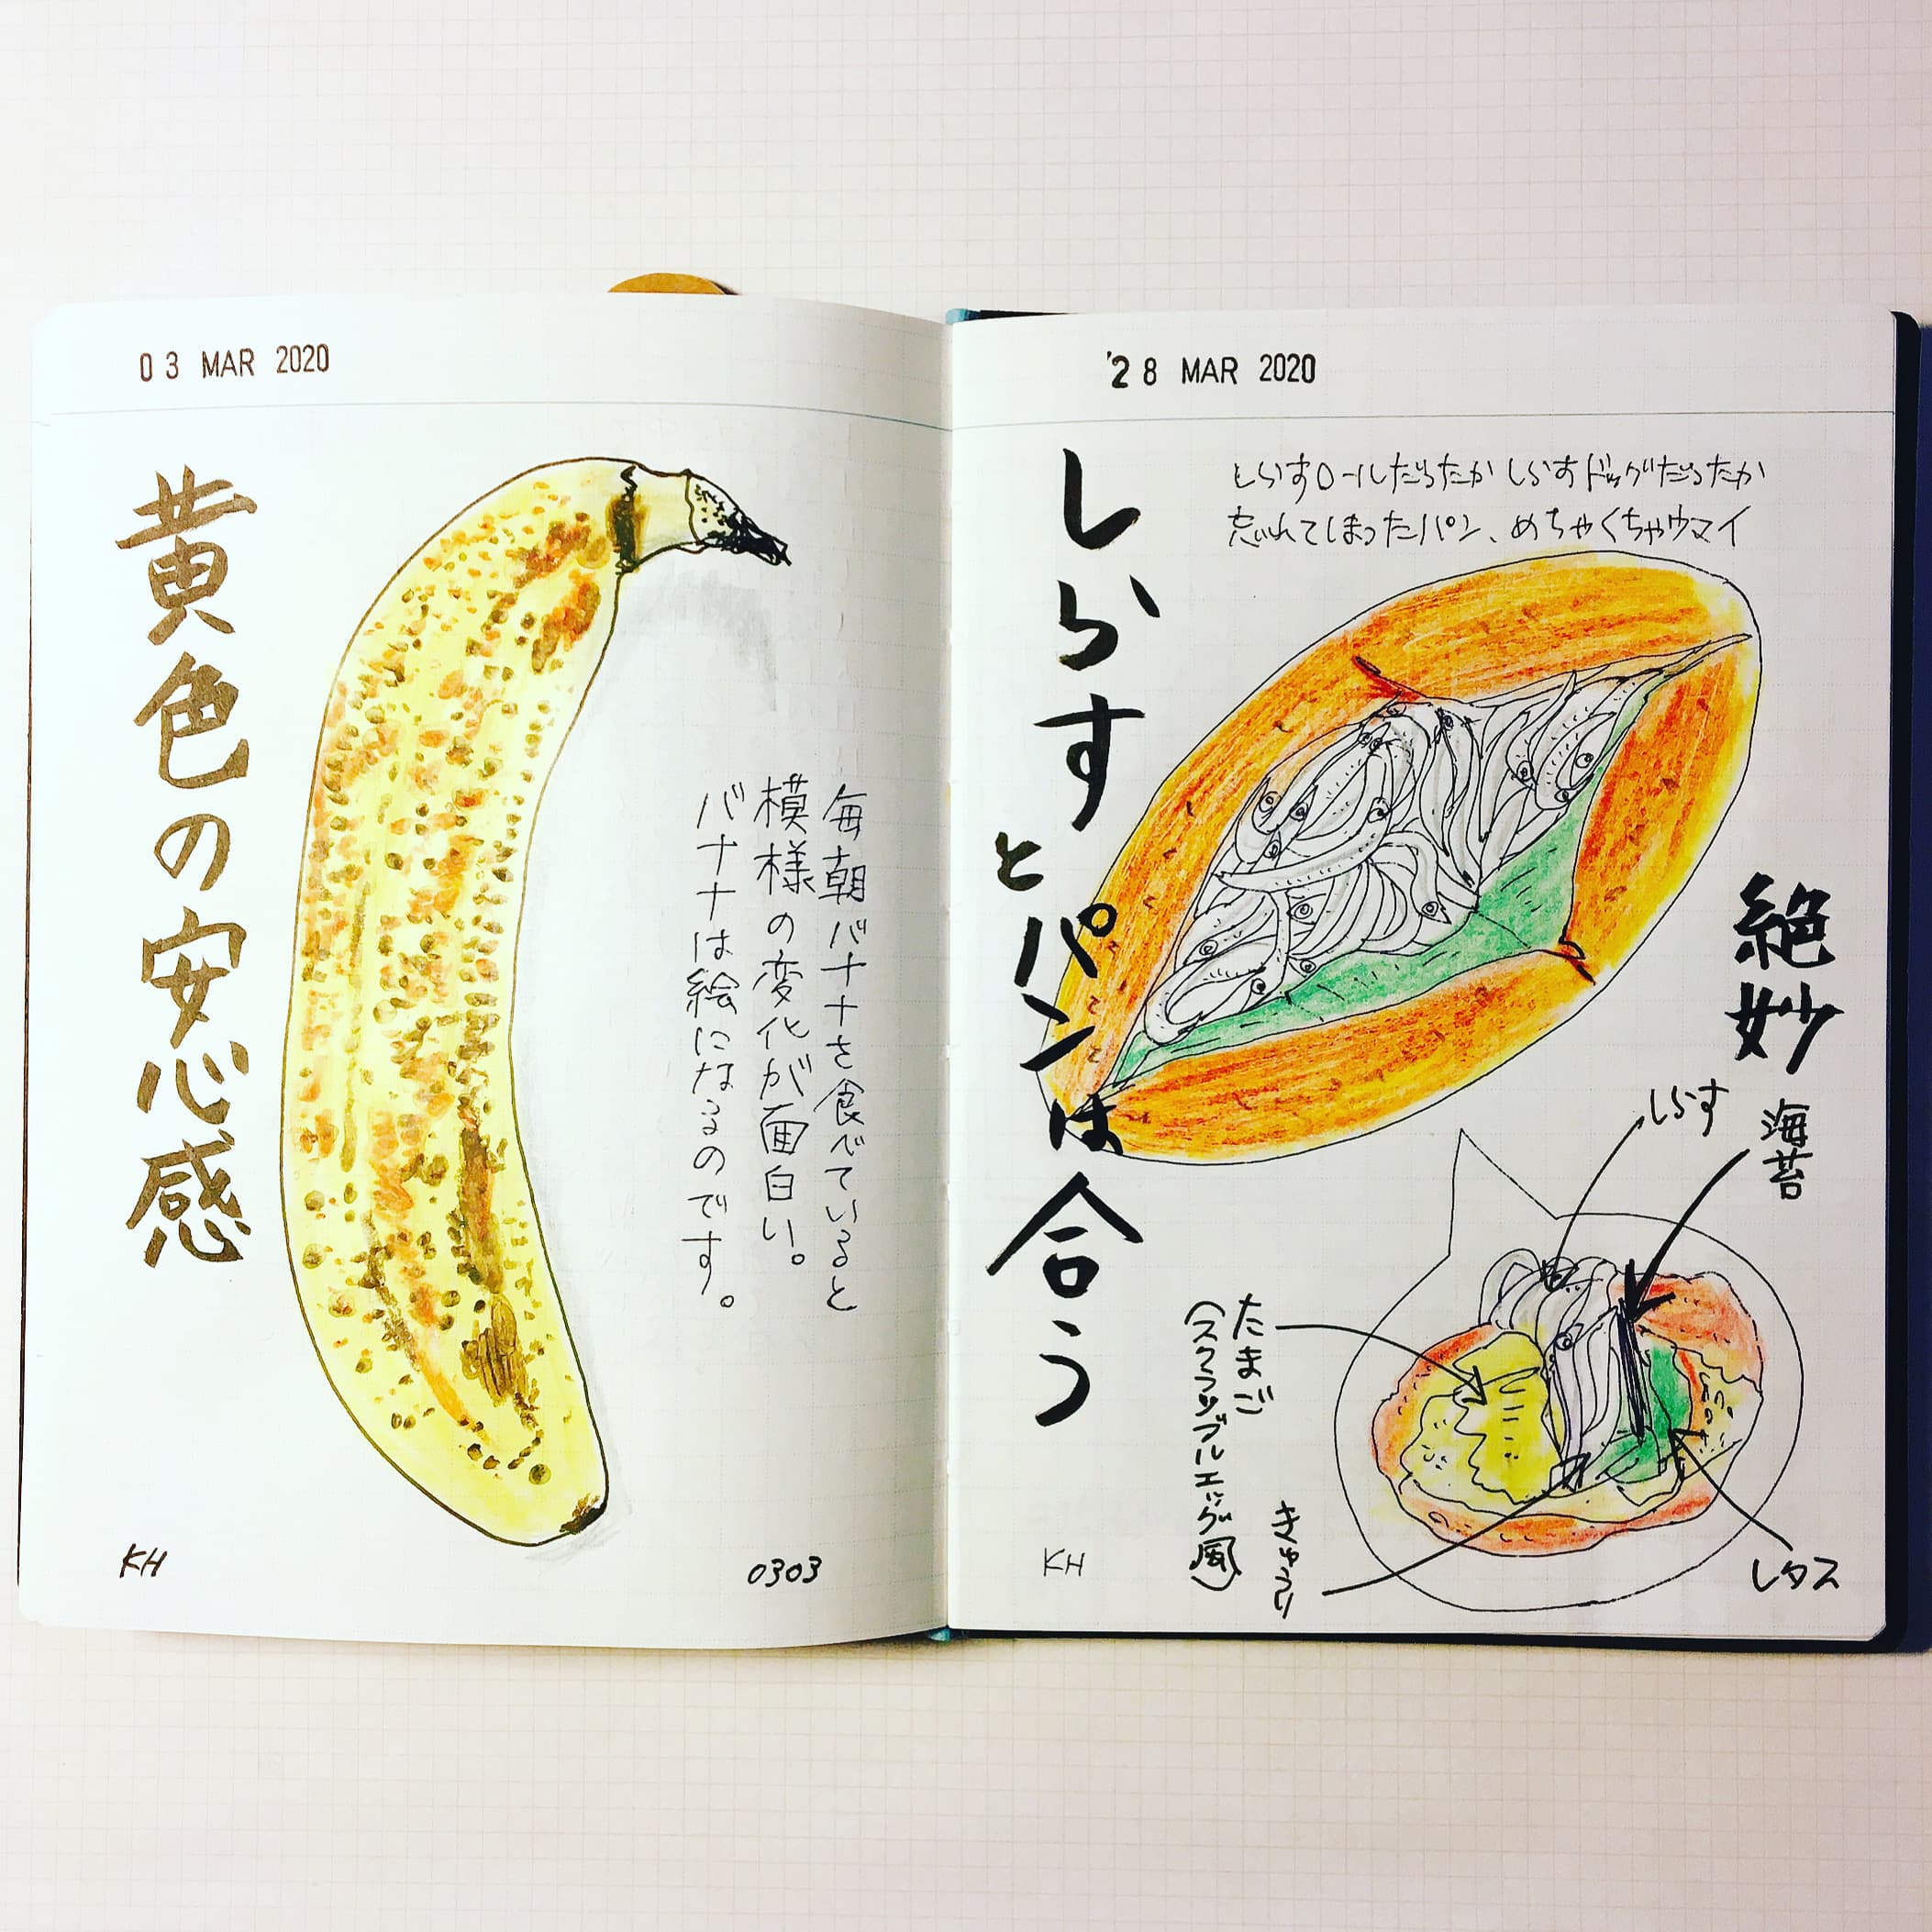 03 MAR 2020
黄色の安心感
毎朝バナナを食べていると
模様の変化が面白い。
バナナは絵になるのです。
KH
0303
28 MAR 2020
しらすとパンは合う
しらすロールだったか しらすドッグだったか
忘れてしまったパン、めちゃくちゃウマイ
絶妙
しらす
海苔
たまご
(スクランブルエッグ風)
きゅうり
レタス
KH